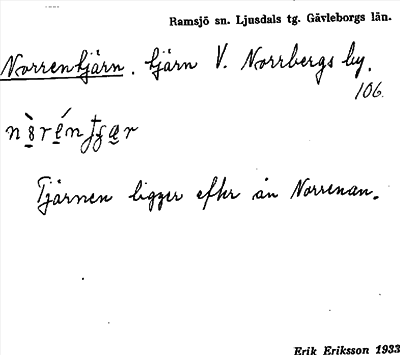 Ramsjö sn. Ljusdals tg. Gävleborgs län.
Norrentjärn. tjärn V. Norrbergs by.
106.
Tjärnen ligger efter ån Norrenan.
Erik Eriksson 1933